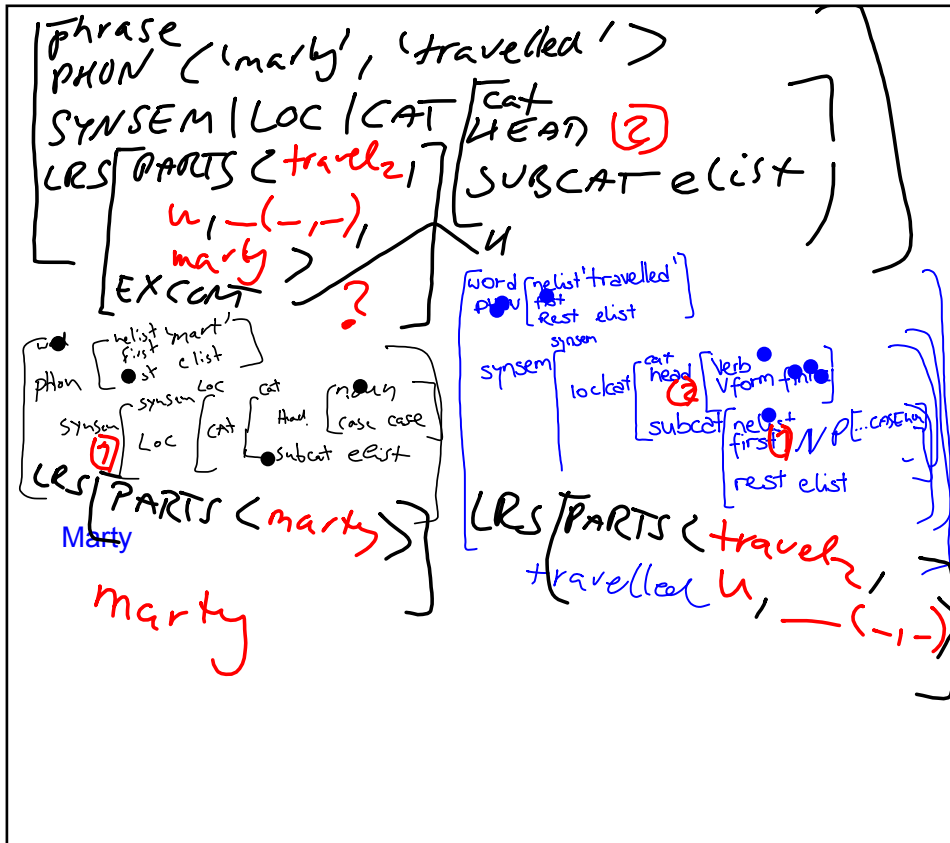 phrase
PHON <'marty', 'travelled'>
SYNSEM | LOC | CAT [cat
HEAD [2]
SUBCAT elist]
LRS [PARTS <travel2,
u, _(_,_),
marty>
EXCONT ?
H
word
PHON [nelist 'mart'
first
elist]
synsem [1] [synsem
LOC [LOC
CAT [cat
Head [noun
case case]
subcat elist
LRS [PARTS <marty>]
Marty
marty
word
PHON [nelist 'travelled'
Rest elist]
synsem [synsem
lockcat [cat
head [2] [verb
vform finite]
subcat [nelist
first [1] NP[...CASE
rest elist]
LRS [PARTS <travel2,
travelled u, _(_,_)